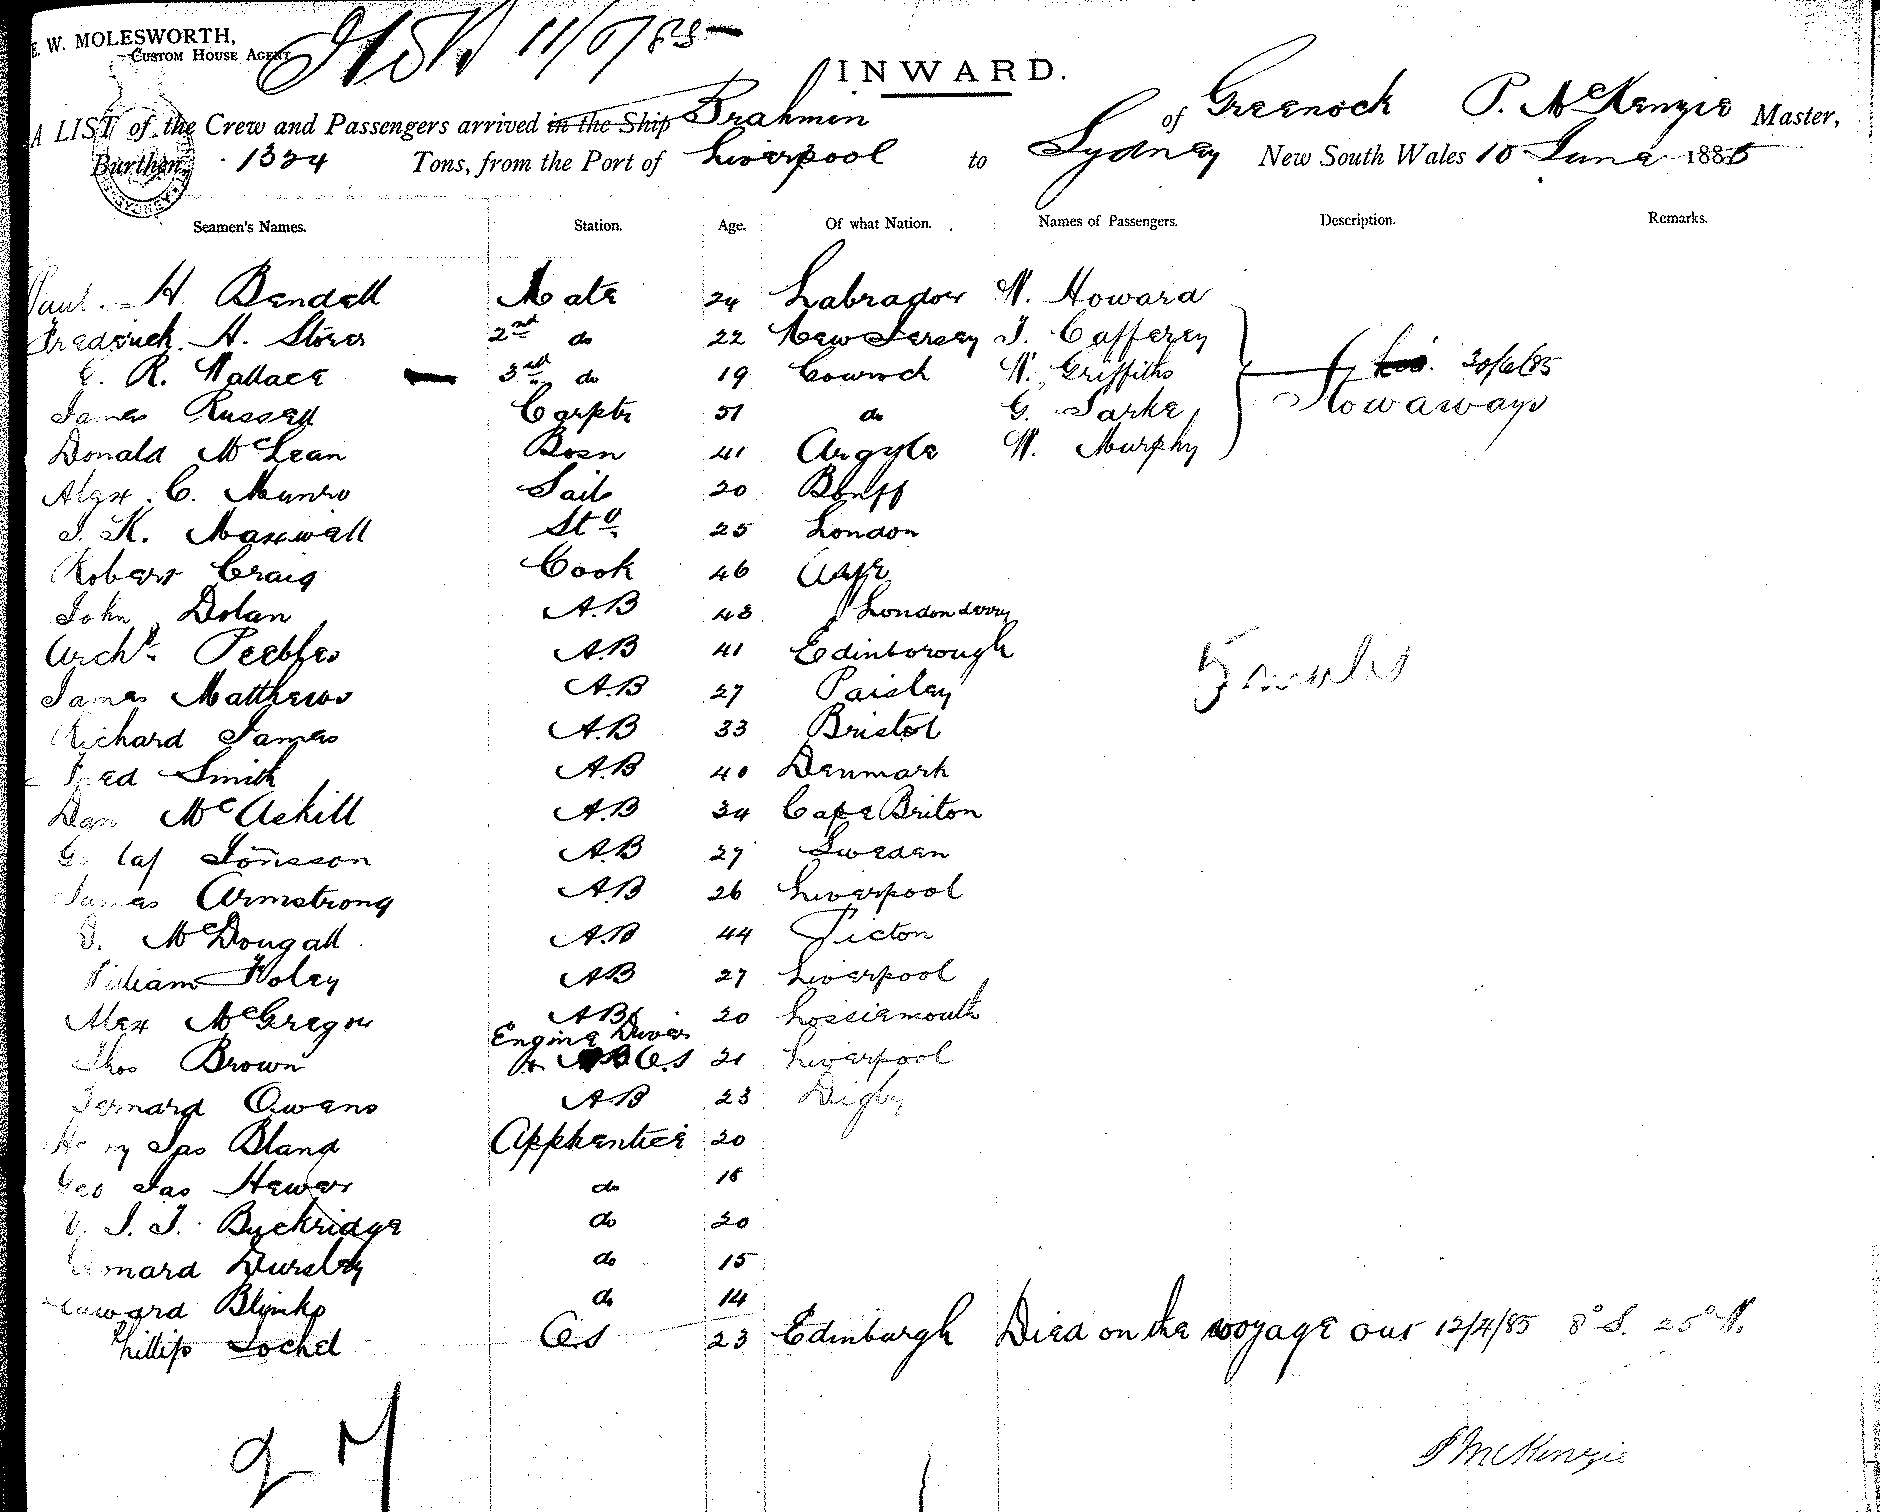 E. W. MOLESWORTH,
CUSTOM HOUSE AGENT
11/6/85
INWARD.
A LIST of the Crew and Passengers arrived in the Ship Brahmin of Greenock P. McKenzie Master,
Burthen 1334 Tons, from the Port of Liverpool to Sydney New South Wales 10 June 1885
Seamen's Names. Station. Age. Of what Nation. Names of Passengers. Description. Remarks.
Paul H Bendell Mate 24 Labrador W. Howard
Frederick H. Storer 2nd do 22 New Jersey J. Cafferey
G. R. Wallace 3rd do 19 Gowrock W. Griffiths 30/6/85
James Russell Carptr 51 do G. Sarke Stowaways
Donald McLean Bosn 41 Argyle W. Murphy
Alex. C. Munro Sail 20 Banff
J. K. Maxwell Std 25 London
Robert Craig Cook 46 Ayr
John Dolan A.B 43 Londonderry
Archd Peebles A.B 41 Edinborough
James Matthews A.B 27 Paisley
Richard James A.B 33 Bristol
Fred Smith A.B 40 Denmark
Dan McAskill A.B 34 Cape Briton
Jonsson A.B 27 Sweden
James Armstrong A.B 26 Liverpool
D. McDougall A.B 44 Picton
William Foley AB 27 Liverpool
Alex McGregor AB 20 Lossiemouth
Engine Driver
Thos Brown & O.S 21 Liverpool
Bernard Owens AB 23 Digby
Henry Jas Bland Apphentice 20
Geo Jas Hewer do 18
J. J. Buckridge do 20
Dursley do 15
Edward Blinko do 14
Phillip Lochel O.S 23 Edinburgh Died on the voyage out 12/4/85 8° S. 25° W.
P McKenzie
27